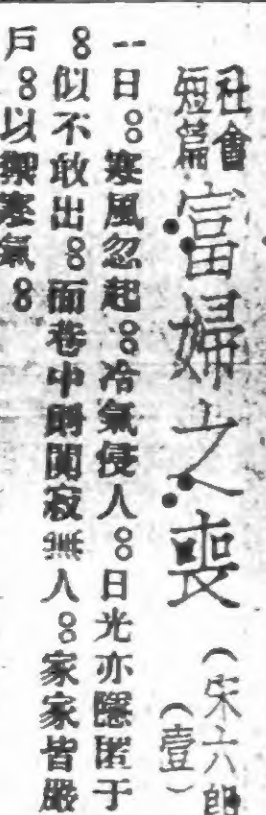 社會
短篇
富婦之喪
（宋六郎
（壹）
一日。寒風忽起。冷氣侵人。日光亦隱匿于
。似不敢出。而巷中時闃寂無人。家家皆嚴
戶。以禦寒氣。